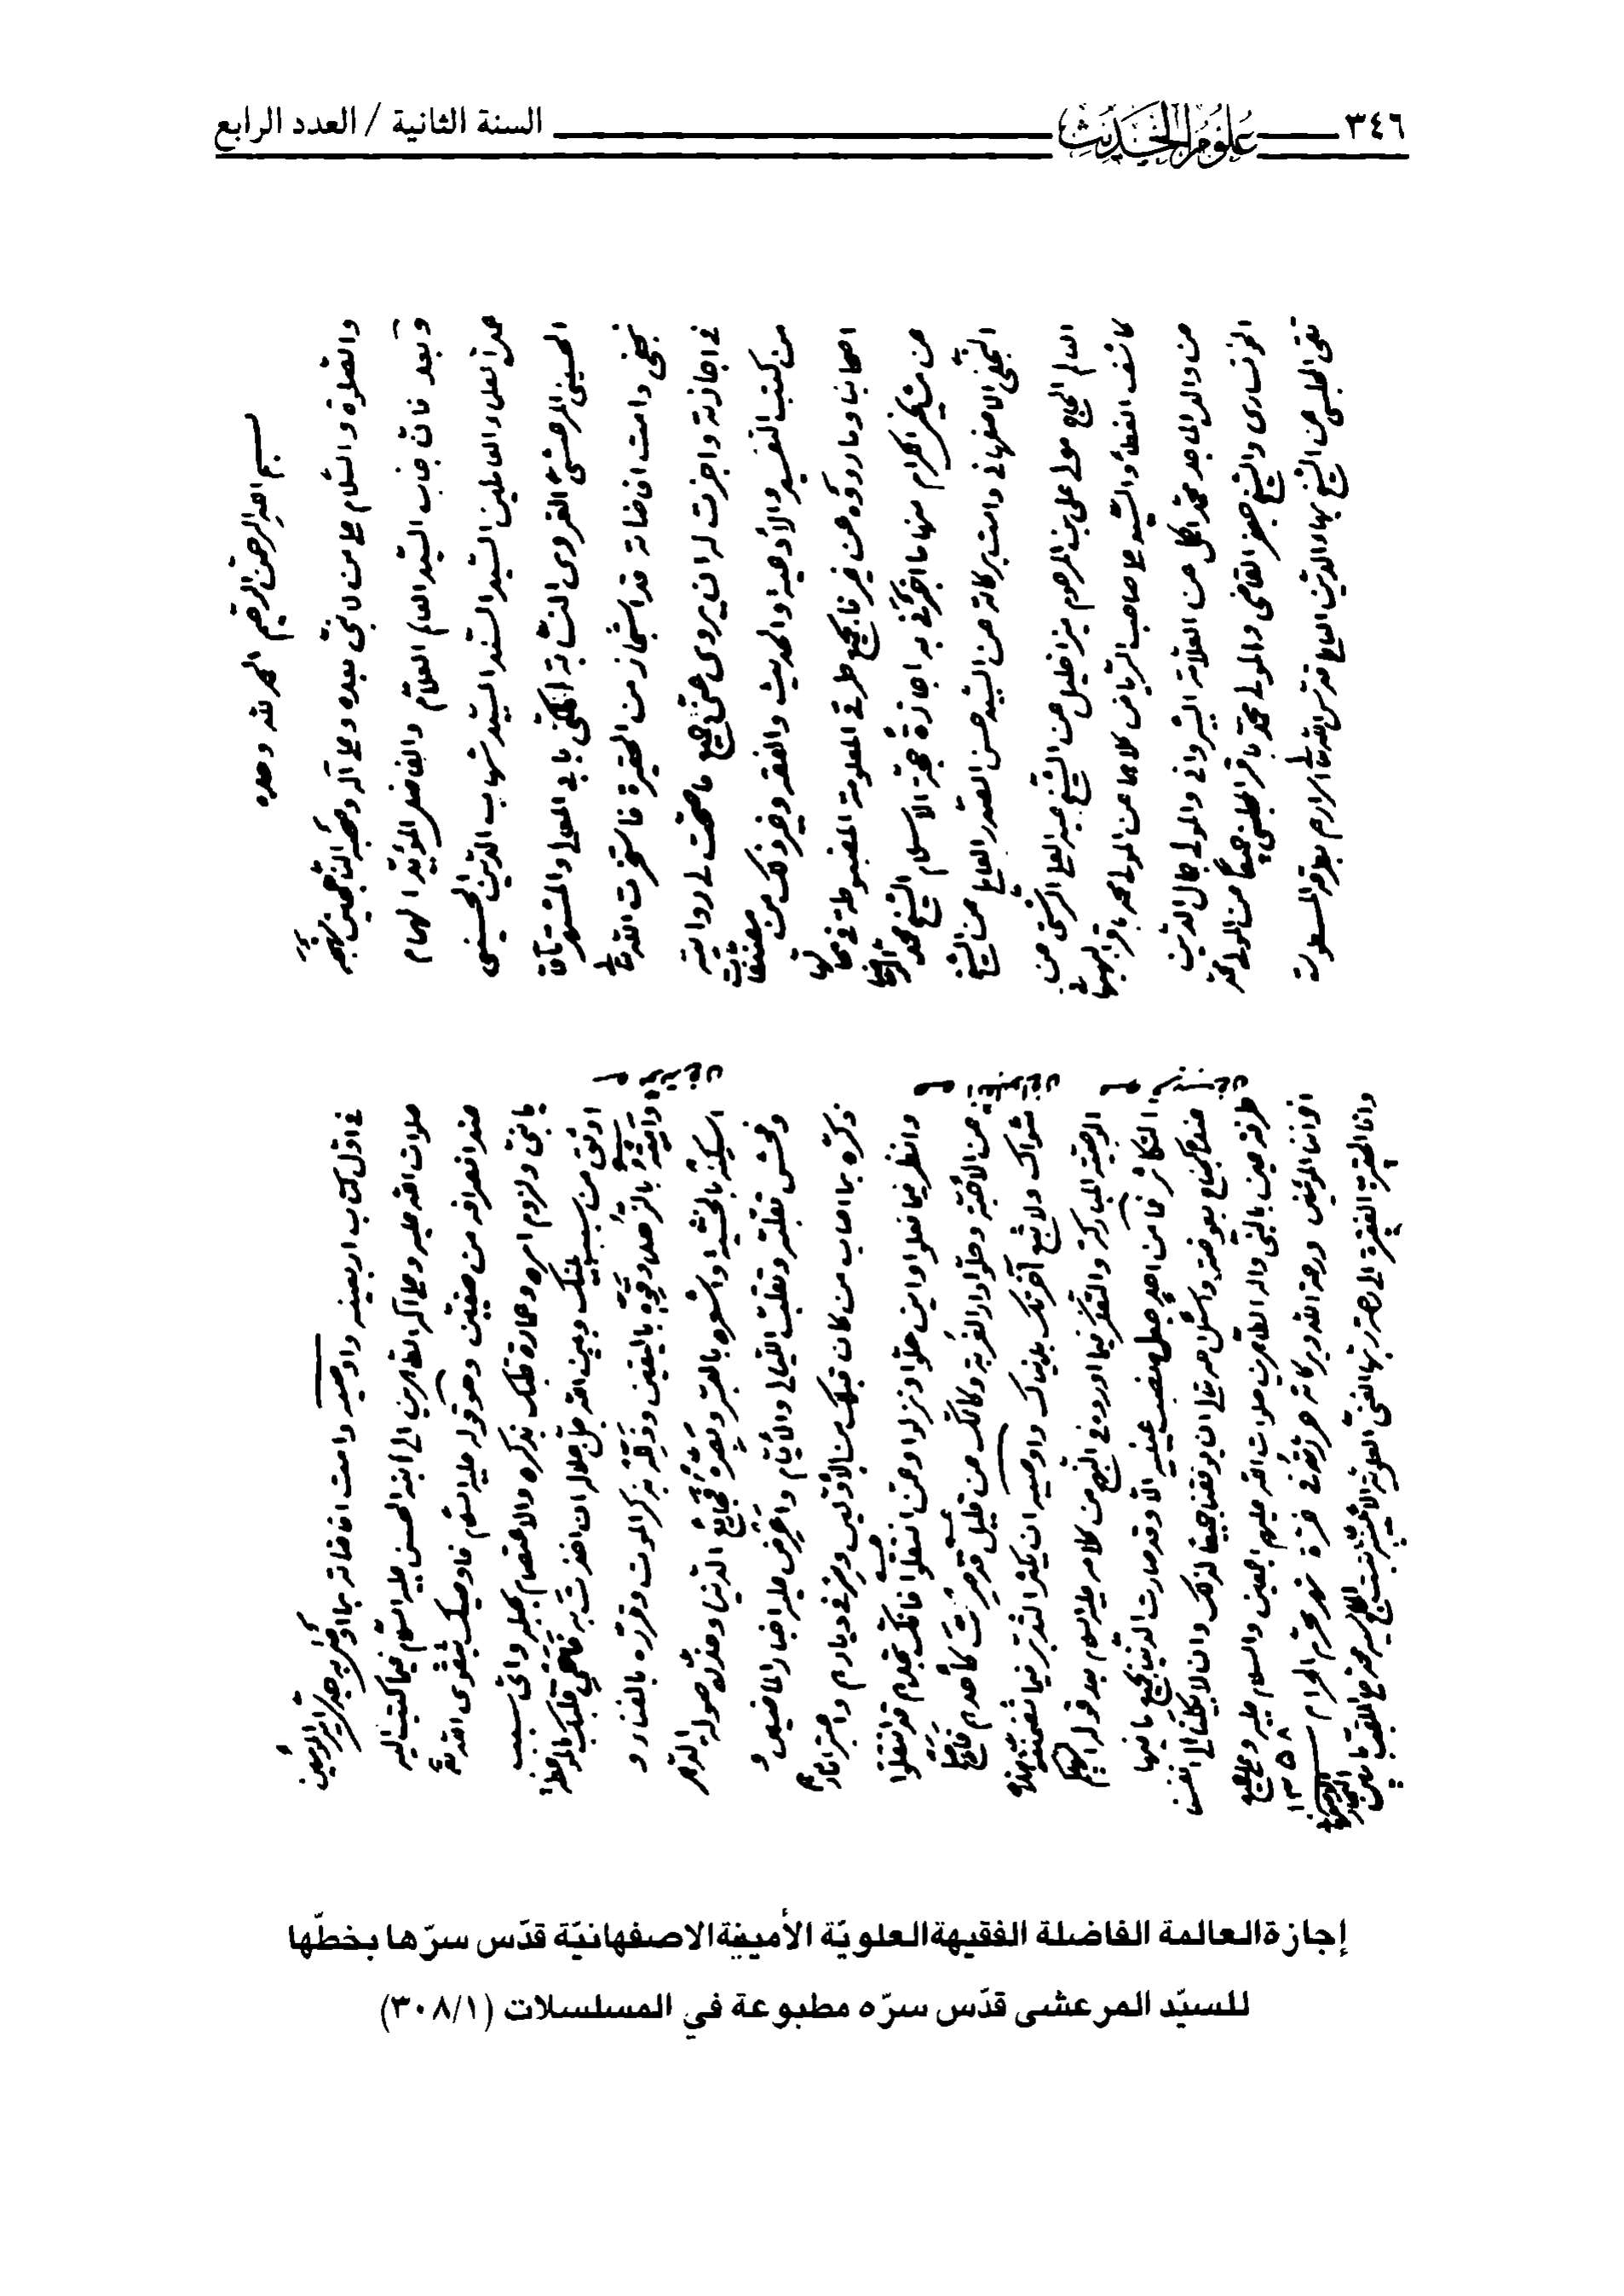 ٣٤٦
علوم الحديث
السنة الثانية / العدد الرابع
بسم الله الرحمن الرحيم الحمد لله وحده
والصلوة والسلام على من لا نبي بعده وعلى آله وصحبه
وبعد فان جناب السيد العالم العلام والفاضل المؤيد الهمام
السيد السند السيد شهاب الدين الحسيني
الحسيني المرعشي الغروي النسابة المكنى بابي المعالي والمشتهر بآقا
نجفي دامت افاضاته قد استجاز من الحقيرة فاستخرت الله تعالى
في اجازته واجزت له ان يروى عني جميع ما صحت لي روايته
من كتب التفسير والأدعية والحديث والفقه وغير ذلك من مصنفات
اصحابنا وما رووه عن غيرنا بجميع طرقي المعلومة المضبوطة في محالها
عن مشايخي الكرام منها ما اجازني به اجازة حجة الاسلام الشيخ محمد الرضا
النجفي الاصفهاني دامت بركاته عن السيد حسن الصدر العاملي عن الشيخ
العالم الحاج مولى علي بن المرحوم ميرزا خليل عن الشيخ عبد العلي الرشتي عن
كاشف الغطاء والسيد علي صاحب الرياض كلاهما عن المولى محمد باقر البهبهاني
عن والده الماجد محمد اكمل عن العلامة الشيرواني والمولى جمال الدين
الخونساري والشيخ جعفر القاضي والمولى محمد باقر المجلسي جميعاً عن المولى محمد
تقي المجلسي عن الشيخ بهاء الدين العاملي قدس الله تعالى اسرارهم بطرقه المسطورة
في اول كتاب اربعينه واوصيه دامت افاضاته بما اوصى به جده امير المؤمنين
صلوات الله عليه وعلى آله الطاهرين الى ابنه الحسن عليه السلام فيما كتبه اليه
عند انصرافه من صفين وهو قوله عليه السلم فاوصيك بتقوى الله
يا بني ولزوم امره وعمارة قلبك بذكره والاعتصام بحبله واي سبب
اوثق من سبب بينك وبين الله جل جلاله ان اخذت به فاحي قلبك بالموعظة
وامته بالزهد وقوه باليقين وذلله بذكر الموت وقرره بالفناء و
اسكنه بالخشية واشعره بالصبر وبصره فجائع الدنيا وحذره صولة الدهر
وفحش تقلبه وتقلب الليالي والأيام واعرض عليه اخبار الماضين و
ذكره بما اصاب من كان قبلك من الأولين وسر في ديارهم واعتبر آثارهم
وانظر فيما فعلوا واين حلوا ونزلوا وعمن انتقلوا فانك تجدهم قد انتقلوا
عن الأحبة وحلوا دار الغربة وكأنك عن قليل قد صرت كأحدهم فاصلح
مثواك ولا تبع آخرتك بدنياك واوصيه ان يكثر التدبر فيما تضمنته هذه
الوصية المباركة والتفكر فيما اورده في النهج من كلامه عليه السلم بعد قوله الهيكم
التكاثر فما من احد جعل نصب عينيه الا وقد صارت الدنيا بجميع ما فيها
عنده كجناح بعوضة واسئل الله تعالى ان يوفقنا جميعاً لذلك وان لا يكلنا الى انفسنا
طرفة عين بالنبي وآله الطاهرين صلوات الله عليهم اجمعين والسلام عليه وعلى جميع
اخواننا المؤمنين ورحمة الله وبركاته حررته في غرة شهر محرم الحرام ١٣٥٨
وانا الحقيرة الفقيرة الى رحمة ربها الغني العلوية
إجازة العالمة الفاضلة الفقيهة العلويّة الأمينة الاصفهانيّة قدّس سرّها بخطّها
للسيّد المرعشى قدّس سرّه مطبوعة في المسلسلات (٣٠٨/١)